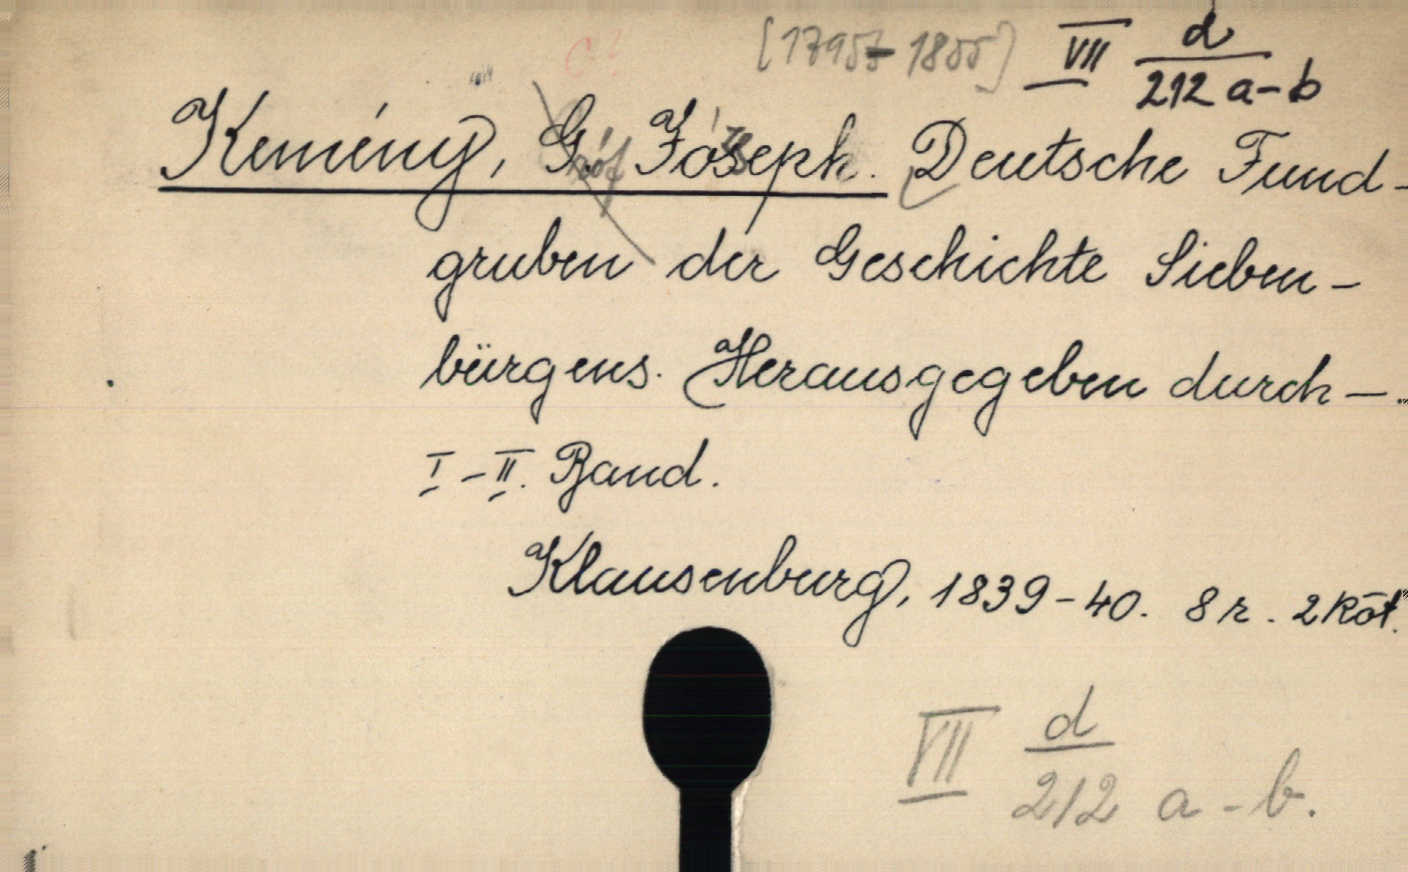 [1795-1855) VII d
212 a-b
Kemény, G. Gróf József. Joseph. Deutsche Fund-
gruben der Geschichte Sieben-
bürgens. Herausgegeben durch —.
I-II. Band.
Klausenburg, 1839-40. 8 r. 2 köt.
VII d
212 a-b.